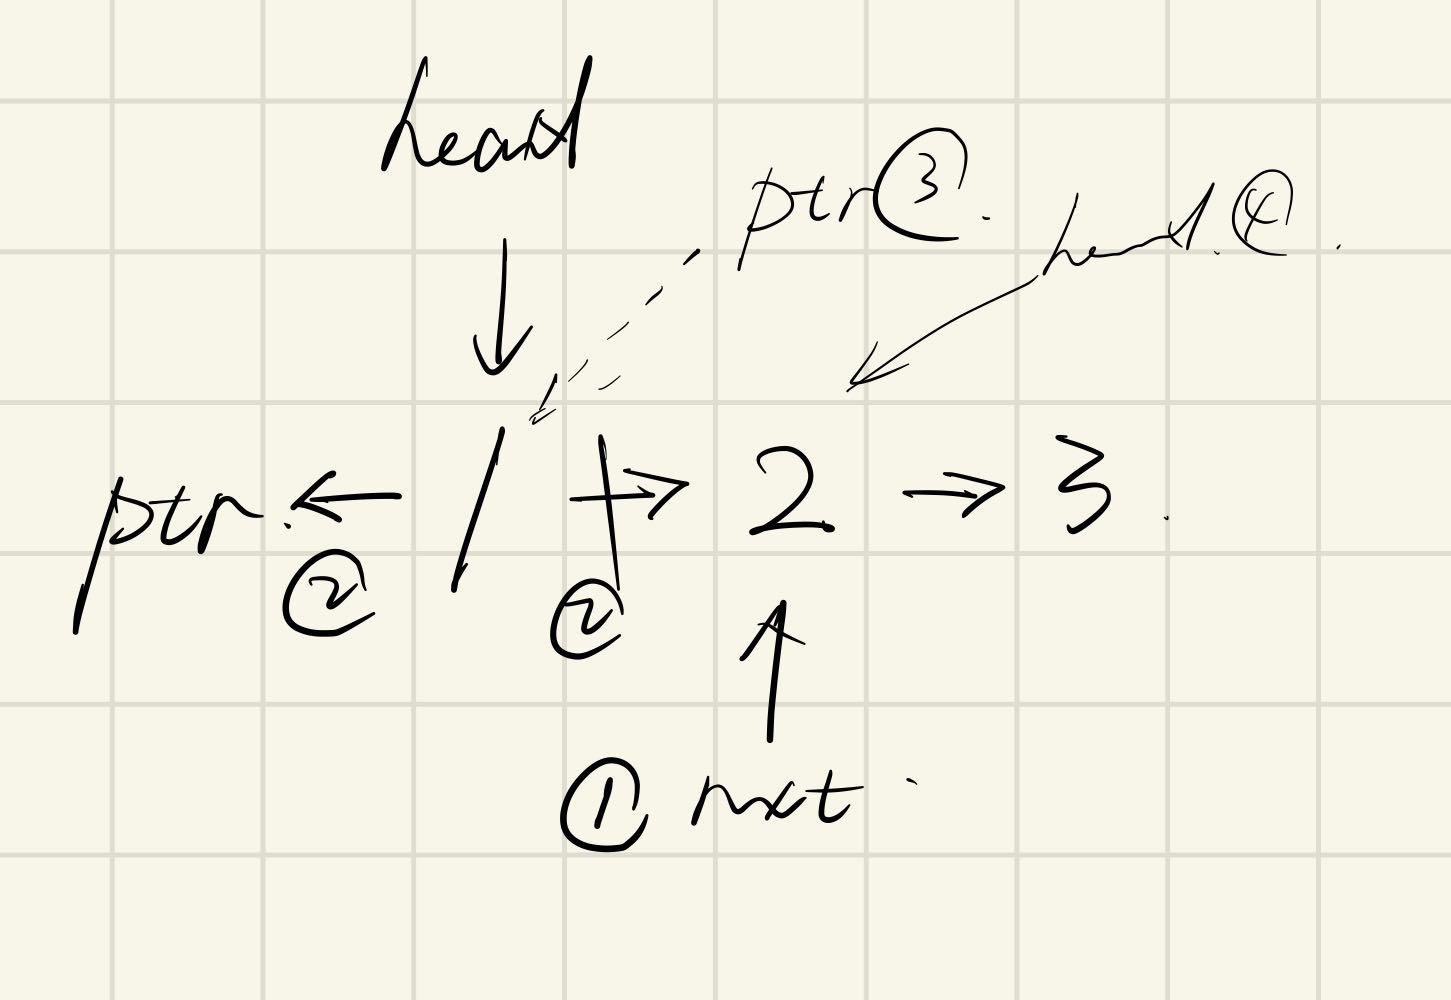 head
ptr ③.
head. ④.
ptr. ← 1 → 2 → 3.
② ②
① nxt